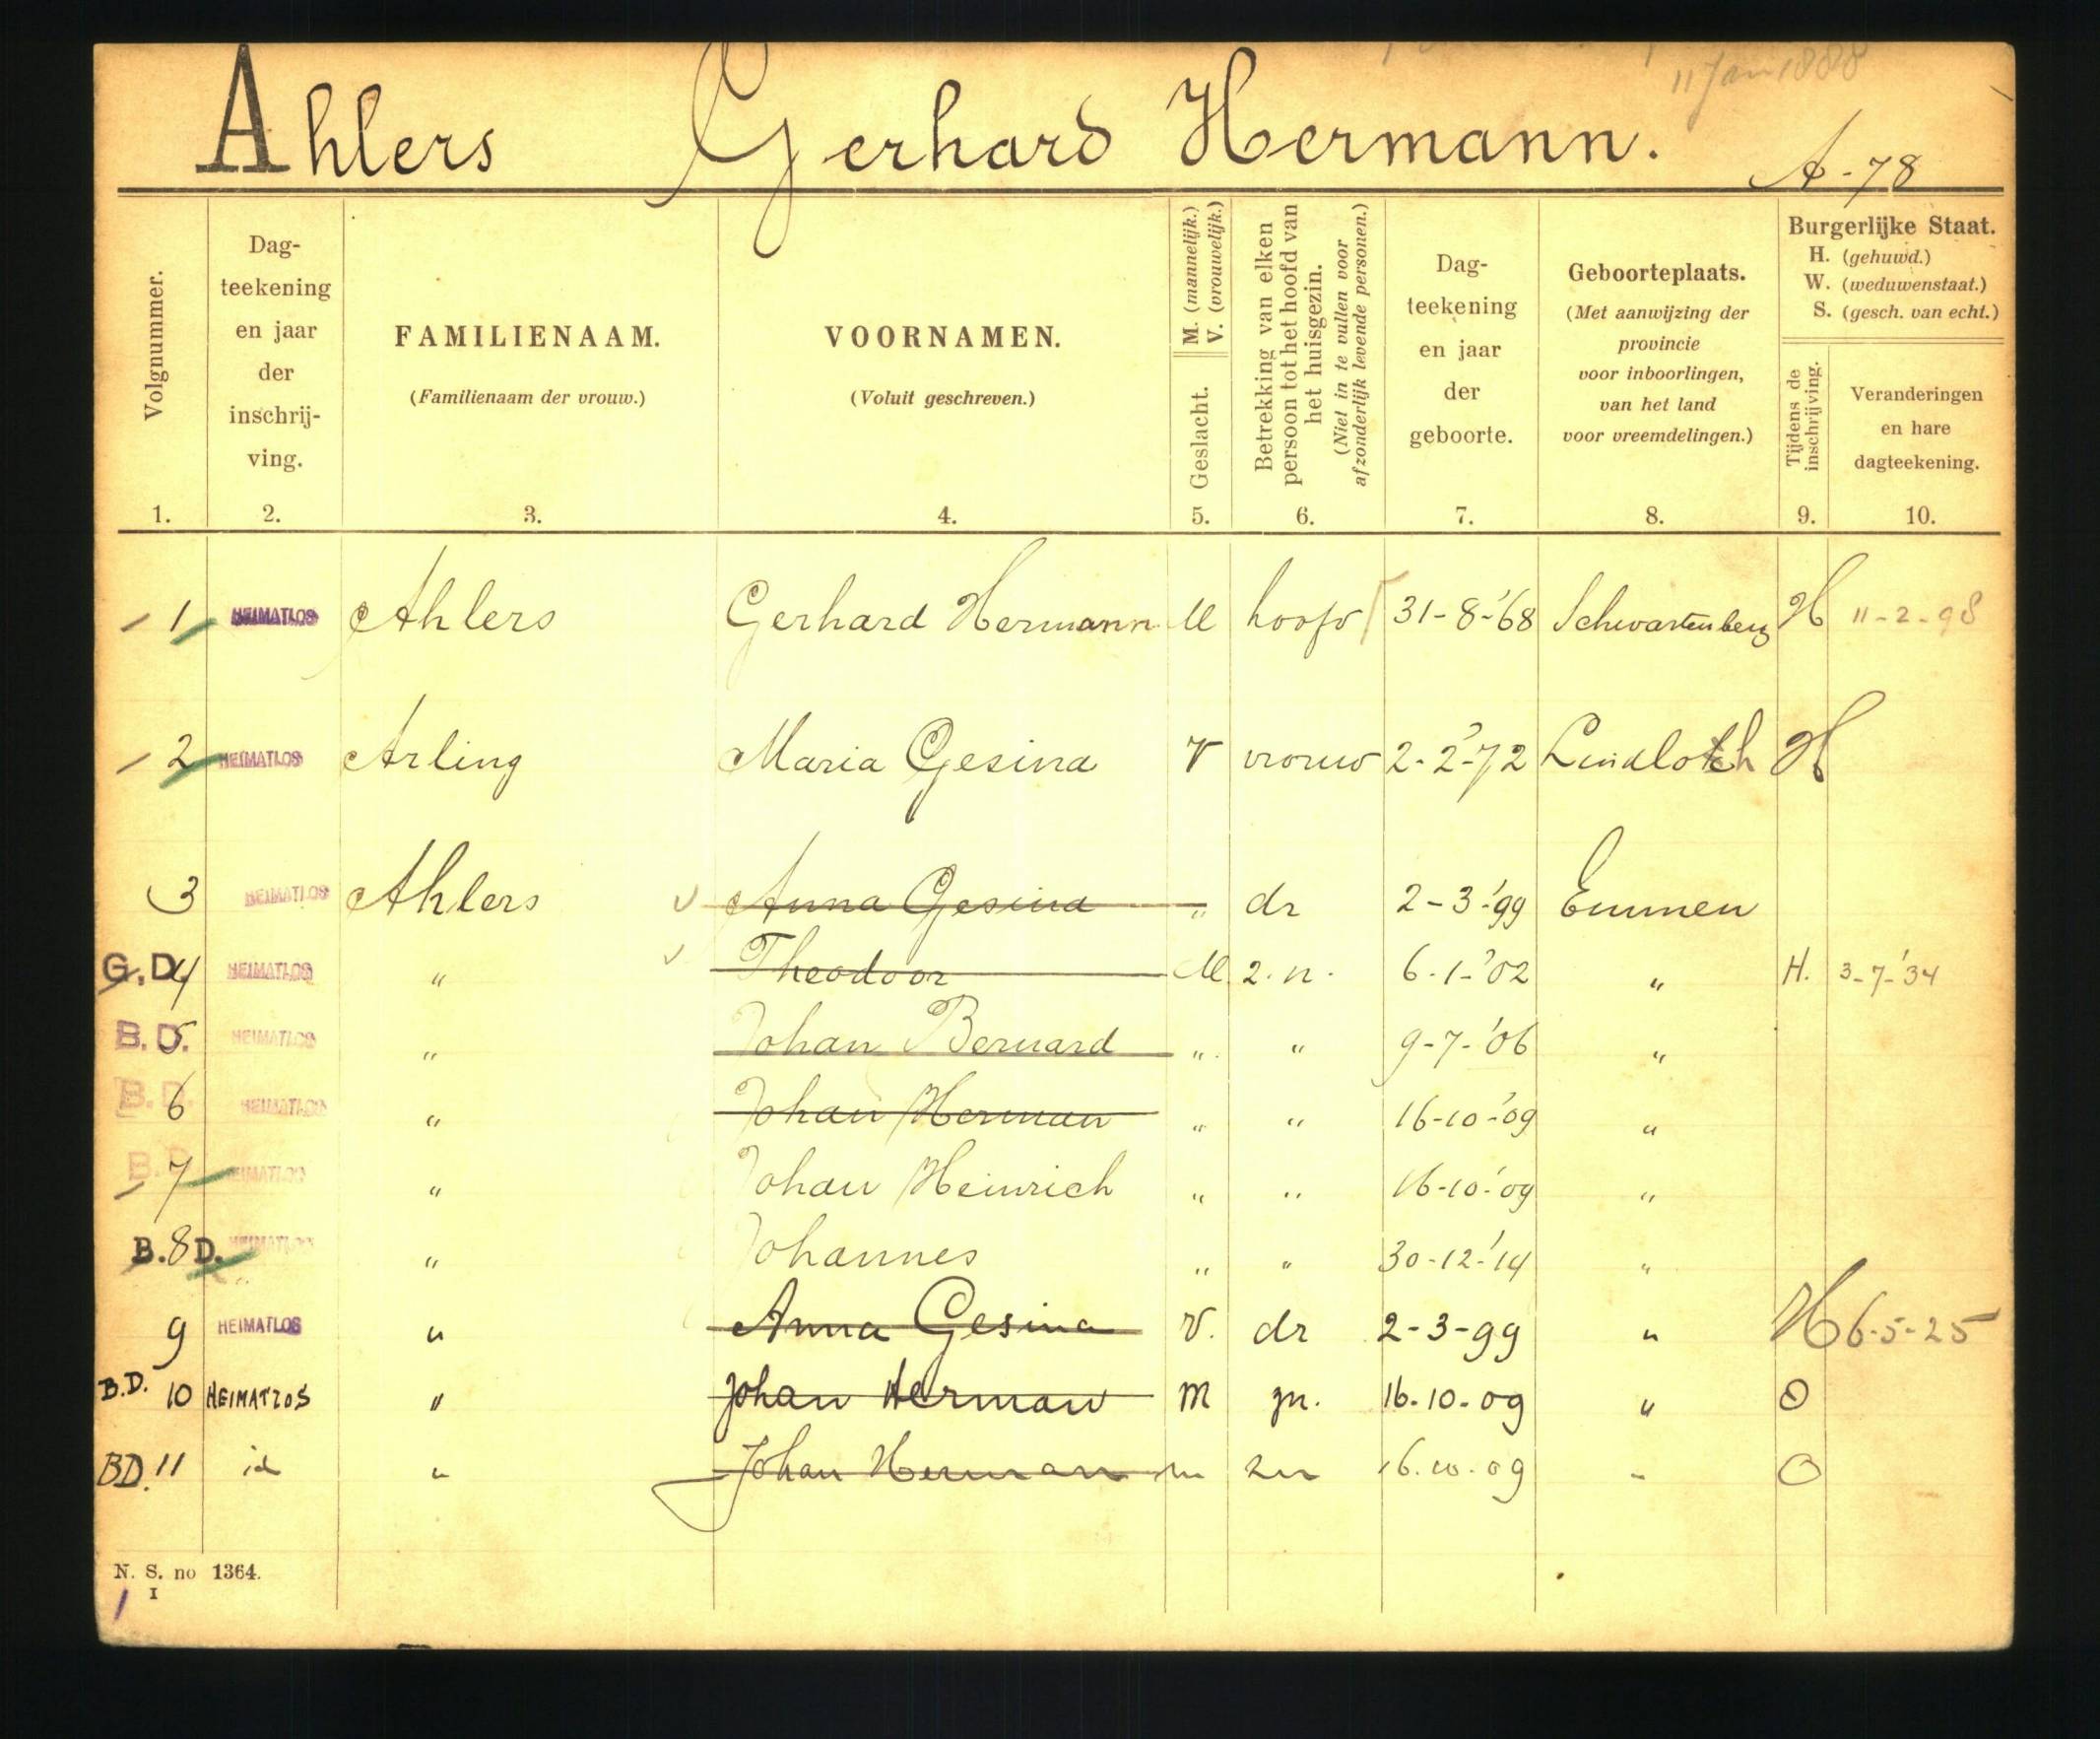 11 Jan 1888
Ahlers Gerhard Hermann.
A-78
Volgnummer.
1.
Dag-
teekening
en jaar
der
inschrij-
ving.
2.
FAMILIENAAM.
(Familienaam der vrouw.)
3.
VOORNAMEN.
(Voluit geschreven.)
4.
M. (mannelijk.)
V. (vrouwelijk.)
Geslacht.
5.
Betrekking van elken
persoon tot het hoofd van
het huisgezin.
(Niet in te vullen voor
afzonderlijk levende personen.)
6.
Dag-
teekening
en jaar
der
geboorte.
7.
Geboorteplaats.
(Met aanwijzing der
provincie
voor inboorlingen,
van het land
voor vreemdelingen.)
8.
Burgerlijke Staat.
H. (gehuwd.)
W. (weduwenstaat.)
S. (gesch. van echt.)
Tijdens de
inschrijving.
9.
Veranderingen
en hare
dagteekening.
10.
1 HEIMATLOS Ahlers Gerhard Hermann M hoofd 31-8-'68 Schwartenberg H 11-2-98
2 HEIMATLOS Arling Maria Gesina V vrouw 2-2-'72 Lindloh H
3 HEIMATLOS Ahlers Anna Gesina " dr 2-3-'99 Emmen
G.D. 4 HEIMATLOS " Theodoor M z.n. 6-1-'02 " H. 3-7-'34
B.D. 5 HEIMATLOS " Johan Bernard " " 9-7-'06 "
B.D. 6 HEIMATLOS " Johan Herman " " 16-10-'09 "
B.D. 7 HEIMATLOS " Johan Heinrich " " 16-10-'09 "
B.D. 8 HEIMATLOS " Johannes " " 30-12-'14 "
9 HEIMATLOS " Anna Gesina V. dr 2-3-99 " H 6-5-25
B.D. 10 HEIMATLOS " Johan Herman M zn. 16-10-09 " O
BD. 11 id " Johan Herman m zn 16.10.09 " O
N. S. no 1364.
I